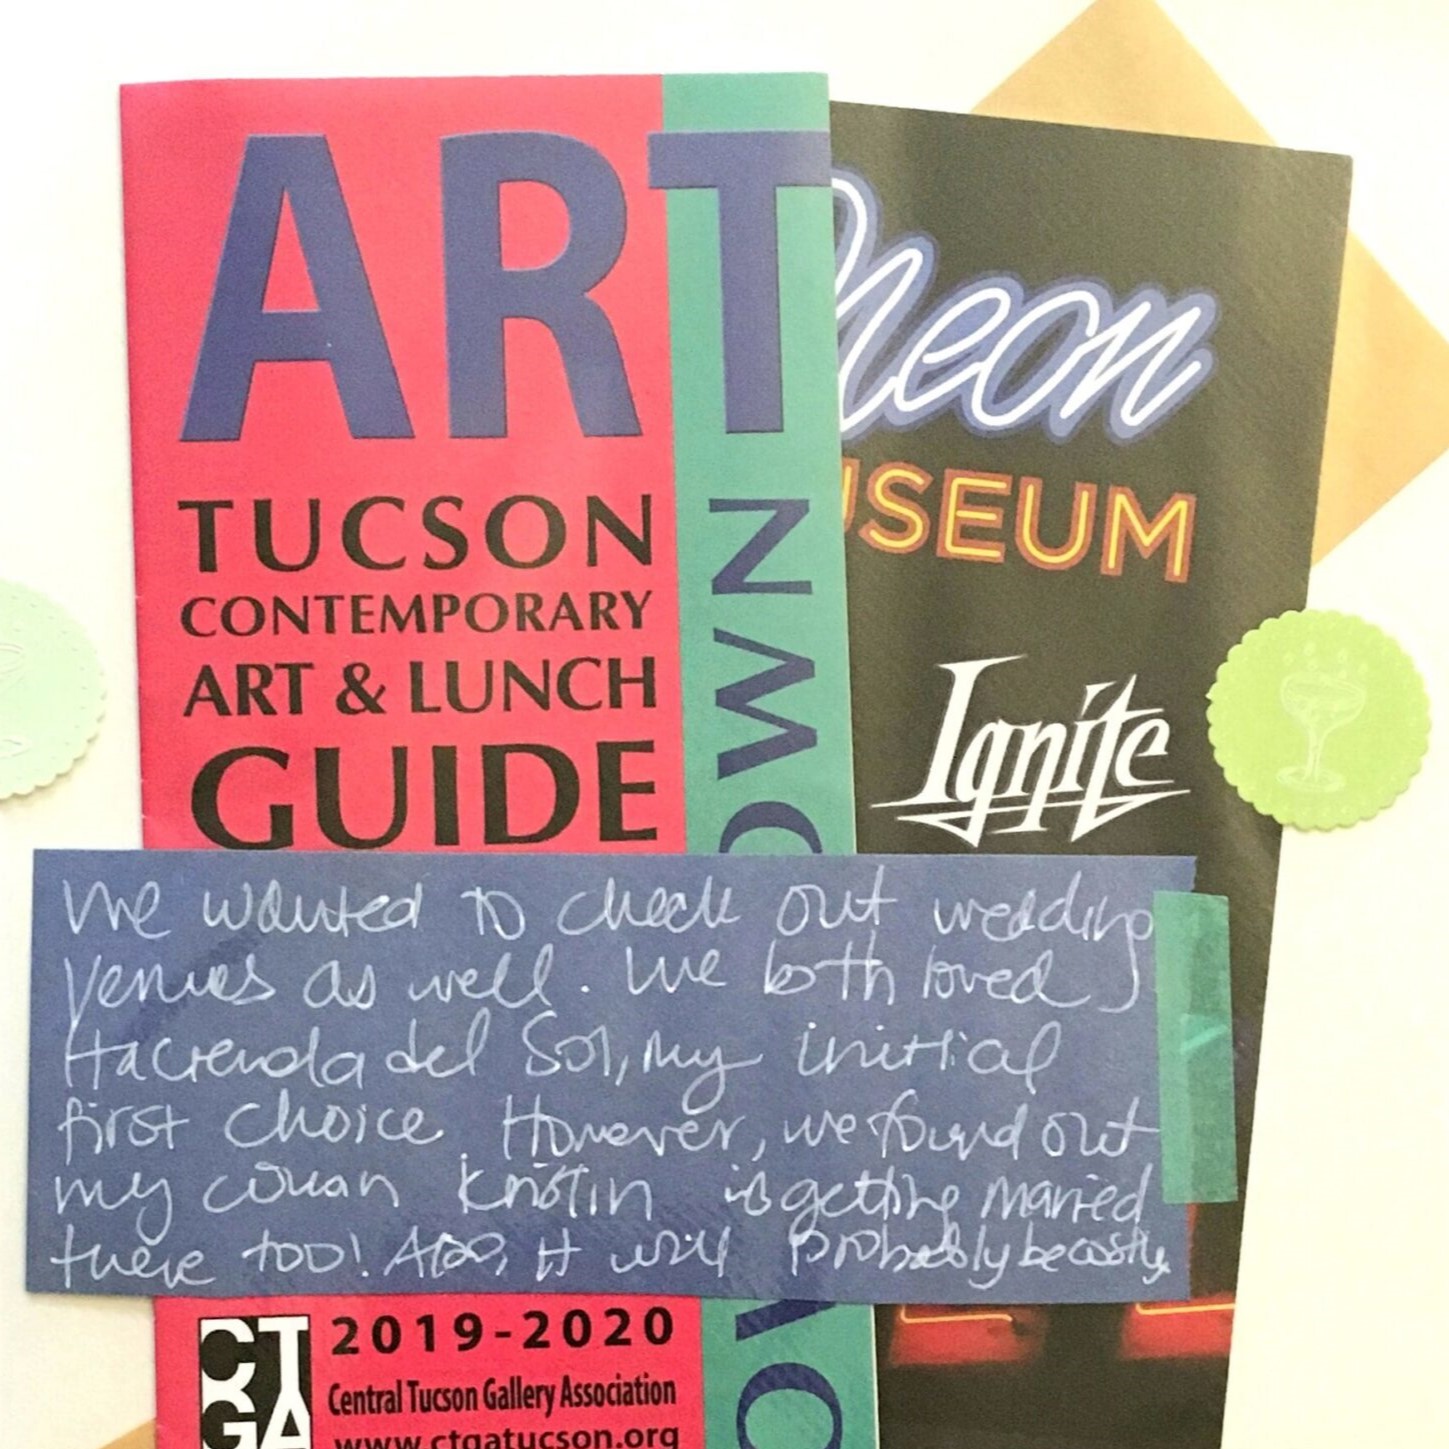 ART
TUCSON
CONTEMPORARY
ART & LUNCH
GUIDE
Neon
USEUM
Ignite
We wanted to check out wedding
venues as well. We both loved
Hacienda del Sol, my initial
first choice. However, we found out
my cousin Kristin is getting married
there too! Also, it will probably be costly
CT
GA
2019-2020
Central Tucson Gallery Association
www.ctgatucson.org
OWN
OW